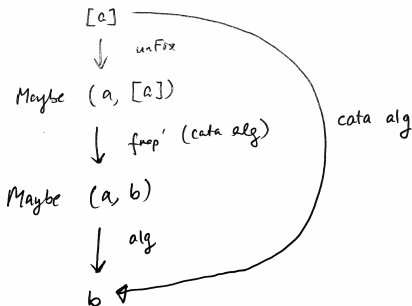 [a]
unFix
Maybe (a, [a])
fmap' (cata alg)
cata alg
Maybe (a, b)
alg
b